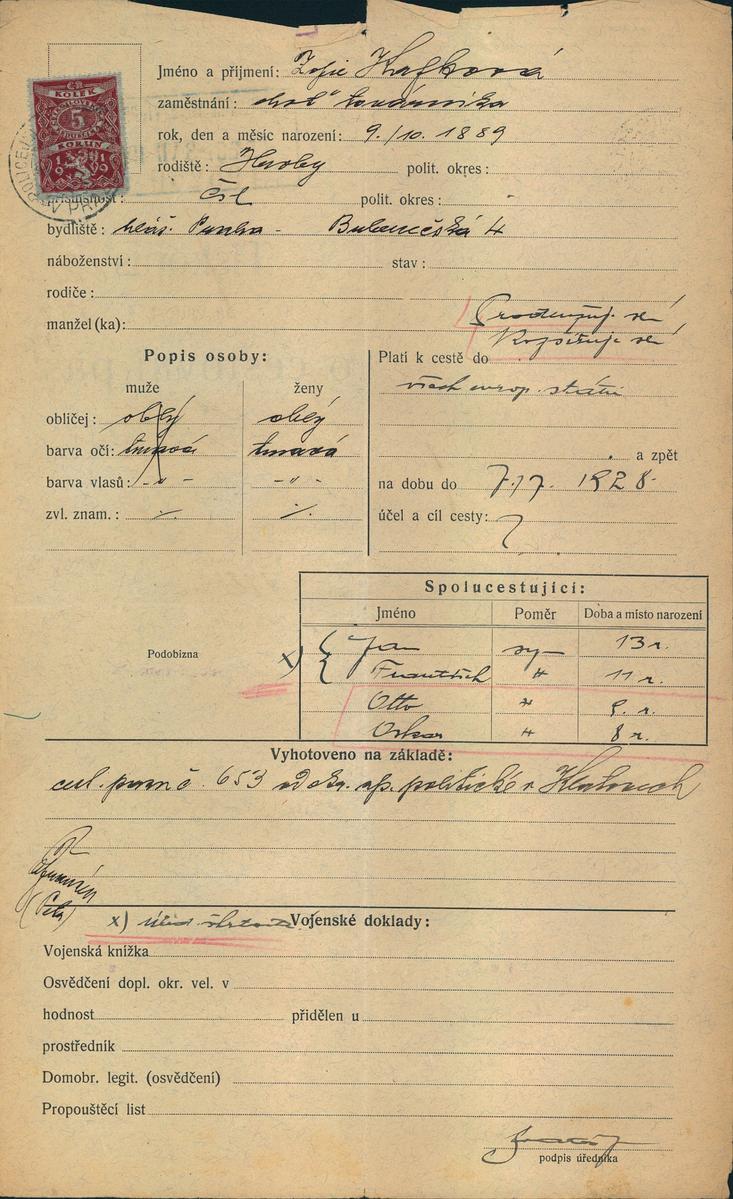 KOLEK
5
KORUN
1919
Jméno a příjmení: Žofie Kafková
zaměstnání: choť továrníka
rok, den a měsíc narození: 9./10. 1889
rodiště: polit. okres:
příslušnost: Čsl polit. okres:
bydliště: hláš. Praha - Bubenečská 4
náboženství: stav:
rodiče:
manžel(ka):
Prodlužuje se
Rozšiřuje se
Popis osoby:
muže ženy
obličej: oblý oblý
barva očí: tmavá tmavá
barva vlasů: -"- -"-
zvl. znam.: ./. ./.
Platí k cestě do
všech evrop. států
a zpět
na dobu do 7./7. 1928.
účel a cíl cesty:
Spolucestující:
Jméno Poměr Doba a místo narození
x) Jan syn 13 r.
František " 11 r.
Otto " 9. r.
Oskar " 8 r.
Podobizna
Vyhotoveno na základě:
cest. pasu č. 653 od okr. sp. politické v Klatovech
x) Vojenské doklady:
Vojenská knížka
Osvědčení dopl. okr. vel. v
hodnost přidělen u
prostředník
Domobr. legit. (osvědčení)
Propouštěcí list
podpis úředníka